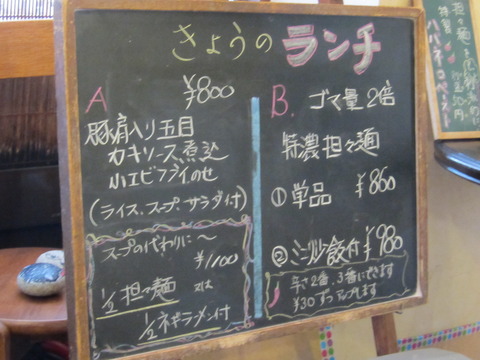 きょうのランチ
A ¥800
豚肩入り五目
カキソース煮込
小エビフライのせ
(ライス、スープ、サラダ付)
スープの代わりに〜
¥1100
½担々麺 又は
½ネギラーメン付
B. ゴマ量2倍
特濃担々麺
①単品 ¥860
②ミニ炒飯付 ¥980
辛さ2番、3番にできます
¥30ずつアップします
担々麺
特習
ハバネロペースト